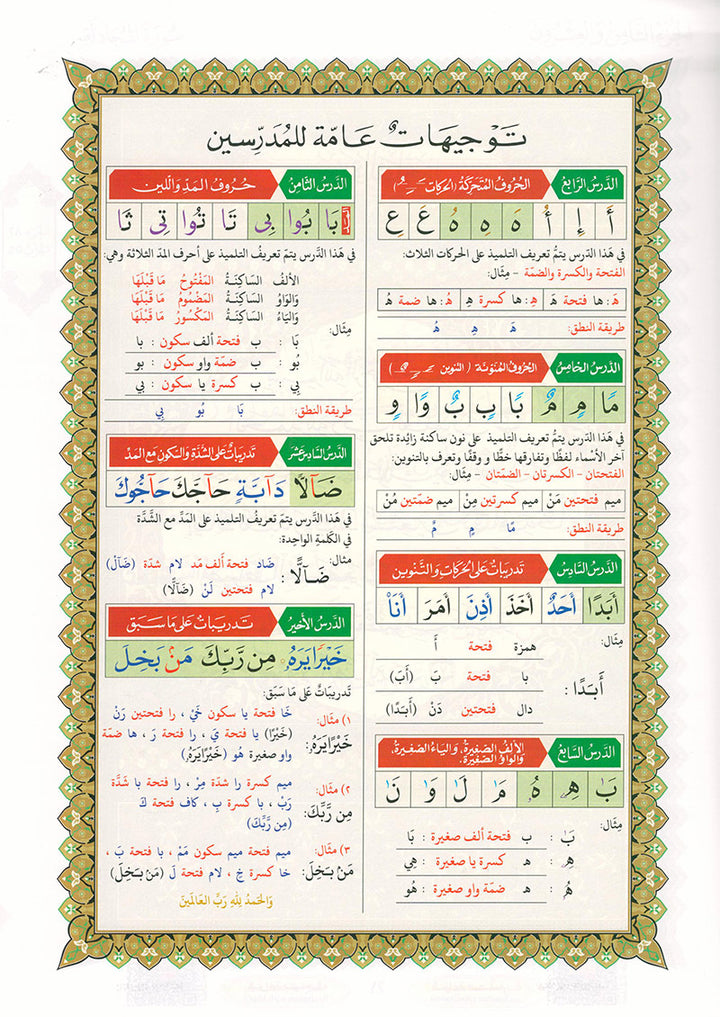 تَوْجِيهَاتٌ عَامّة للمُدَرِّسين
الدَّرسُ الرَّابِعُ
الحُروُفُ المُتَحَرِّكَةُ (الحركات ـَـِـُ)
أَ إِ أُ هَ هِ هُ عَ عِ
في هَذا الدّرس يتمُّ تعريف التلميذ على الحركات الثلاث:
الفتحة والكسرة والضمّة - مِثَال:
هَ: ها فتحة هَ هِ: ها كسرة هِ هُ: ها ضمة هُ
طريقة النطق: هَ هِ هُ
الدَّرسُ الخَامِسُ
الحُروُفُ المُنَوَّنَة (التنوين ـًـٍـٌ)
مًا مٍ مٌ بًا بٍ بٌ وًا وٍ
في هَذا الدَّرس يتمُّ تعريف التلميذ على نون ساكنة زائدة تلحق
آخر الأسْماء لفظًا وتفارقها خطًّا و وقفًا وتعرف بالتنوين:
الفتحتان - الكسرتان - الضمّتان - مِثَال:
ميم فتحتين مَنْ ميم كسرتين مِنْ ميم ضمّتين مُنْ
طريقة النطق: مًا مٍ مٌ
الدَّرسُ السَّادِسُ
تَدريباتٌ على الحَرَكاتِ وَالتَّنوين
أَبَدًا أَحَدٌ أَخَذَ أَذِنَ أَمَرَ أَنَا
مِثَال:
أَبَدًا:
همزة فتحة أَ
با فتحة بَ (أَبَ)
دال فتحتين دَنْ (أَبَدًا)
الدَّرسُ السَّابعُ
الألفُ الصَّغِيرةُ، وَاليَاءُ الصَّغيرةُ،
وَالوَاوُ الصَّغِيرَةُ.
بَٰ هِۦ هُۥ مَٰ لَٰ وَٰ نَٰ
مِثَال:
بَٰ: ب فتحة ألف صغيرة: بَا
هِۦ: ه كسرة يا صغيرة: هِي
هُۥ: ه ضمّة واو صغيرة: هُو
الدَّرسُ الثّامنُ
حُرُوفُ المَدِّ وَاللّين
المد بَا بُوا بِى تَا تُوا تِى ثَا
في هَذا الدَّرس يتمّ تعريفُ التلميذ على أحرف المدّ الثلاثة وهي:
الألفُ السَاكِنَةُ المَفْتُوحُ مَا قَبْلَهَا
وَالوَاوُ السَاكِنَةُ المَضْمُومُ مَا قَبْلَهَا
وَاليَاءُ السَاكِنَةُ المَكْسُورُ مَا قَبْلَهَا
مِثَال:
بَا: ب فتحة ألف سكون: با
بُو: ب ضمّة واو سكون: بو
بِي: ب كسرة يا سكون: بي
طريقة النطق: بَا بُو بِي
الدَّرسُ السَّادِسَ عَشَرَ
تَدريباتٌ على الشدَّة وَالسّكونِ مَعَ المَدّ
ضَآلًّا دَآبَّةٍ حَآجَّكَ حَآجُّوكَ
في هَذا الدَّرس يتمّ تعريفُ التلميذ على المَدِّ مع الشَّدَّة
في الكَلمةِ الوَاحِدة:
مثال:
ضَآلًّا:
ضَاد فتحة ألف مَد لام شدّة (ضَآلّ)
لام فتحتين لَنْ (ضَآلًّا)
الدَّرسُ الأخيرُ
تَدريبَاتٌ عَلى مَا سَبَق
خَيْرًايَرَهُۥ مِن رَّبِّكَ مَنۢ بَخِلَ
تَدريباتٌ على مَا سَبَق:
١) مثال:
خَيْرًايَرَهُۥ:
خَا فتحة يا سكون خَيْ، را فتحتين رَنْ
(خَيْرًا) يا فتحة يَ، را فتحة رَ، ها ضمّة
واو صغيرة هُو (خَيْرًايَرَهُۥ)
٢) مثال:
مِن رَّبِّكَ:
ميم كسرة را شدّة مِرْ، را فتحة با شَدَّة
رَبْ، با كسرة بِ، كاف فتحة كَ
(مِن رَّبِّكَ)
٣) مثال:
مَنۢ بَخِلَ:
ميم فتحة ميم سكون مَمْ، با فتحة بَ،
خا كسرة خِ، لام فتحة لَ (مَنۢ بَخِلَ)
وَالحَمدُ لِلّهِ رَبِّ العَالَمينَ